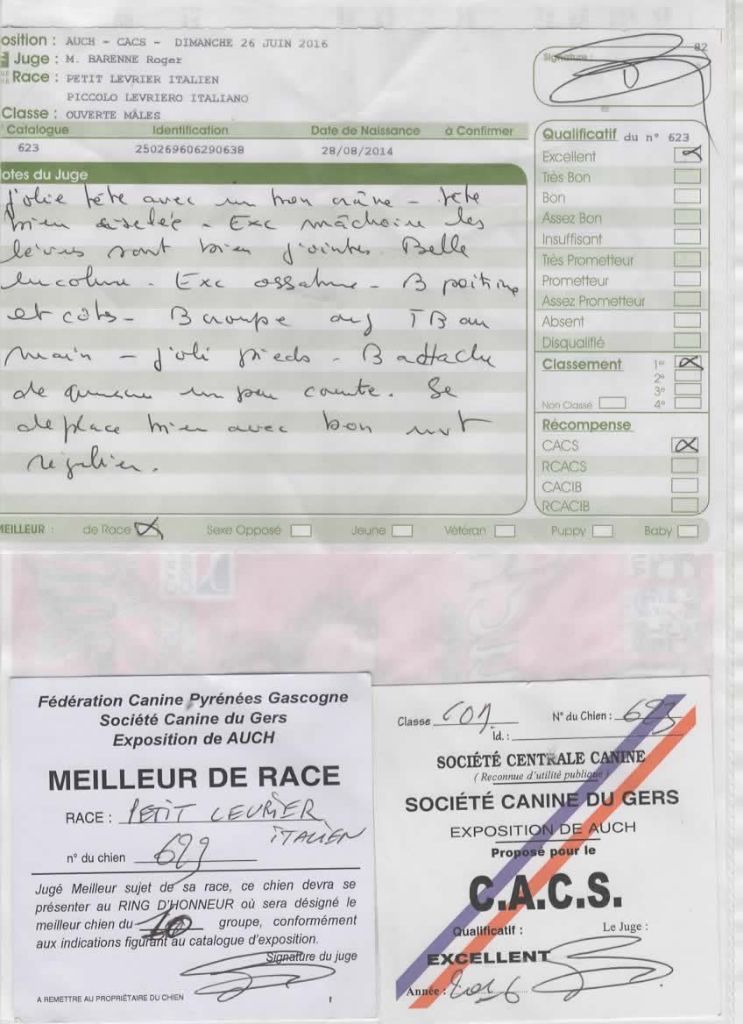 osition : AUCH - CACS - DIMANCHE 26 JUIN 2016
Juge : M. BARENNE Roger
Race : PETIT LEVRIER ITALIEN
PICCOLO LEVRIERO ITALIANO
Classe : OUVERTE MÂLES
82
Signature :
Catalogue Identification Date de Naissance à Confirmer
623 250269606290638 28/08/2014
otes du Juge
Jolie tête avec un bon crâne - tête
bien ciselée - Exc mâchoire les
lèvres sont bien jointes. Belle
encolure - Exc ossature - B poitrine
et côts - B croupe TB au
main - joli pieds - B attache
de queue un peu courte. Se
deplace bien avec bon mvt
régulier.
Qualificatif du n° 623
Excellent
Très Bon
Bon
Assez Bon
Insuffisant
Très Prometteur
Prometteur
Assez Prometteur
Absent
Disqualifié
Classement 1er
2e
3e
Non Classé 4e
Récompense
CACS
RCACS
CACIB
RCACIB
MEILLEUR : de Race Sexe Opposé Jeune Vétéran Puppy Baby
Fédération Canine Pyrénées Gascogne
Société Canine du Gers
Exposition de AUCH
MEILLEUR DE RACE
RACE : PETIT LEVRIER
ITALIEN
n° du chien 623
Jugé Meilleur sujet de sa race, ce chien devra se
présenter au RING D'HONNEUR où sera désigné le
meilleur chien du 10 groupe, conformément
aux indications figurant au catalogue d'exposition.
Signature du juge
A REMETTRE AU PROPRIÉTAIRE DU CHIEN
Classe N° du Chien : 623
Id. :
SOCIÉTÉ CENTRALE CANINE
( Reconnue d'utilité publique )
SOCIÉTÉ CANINE DU GERS
EXPOSITION DE AUCH
Proposé pour le
C.A.C.S.
Qualificatif : Le Juge :
EXCELLENT
Année : 2016